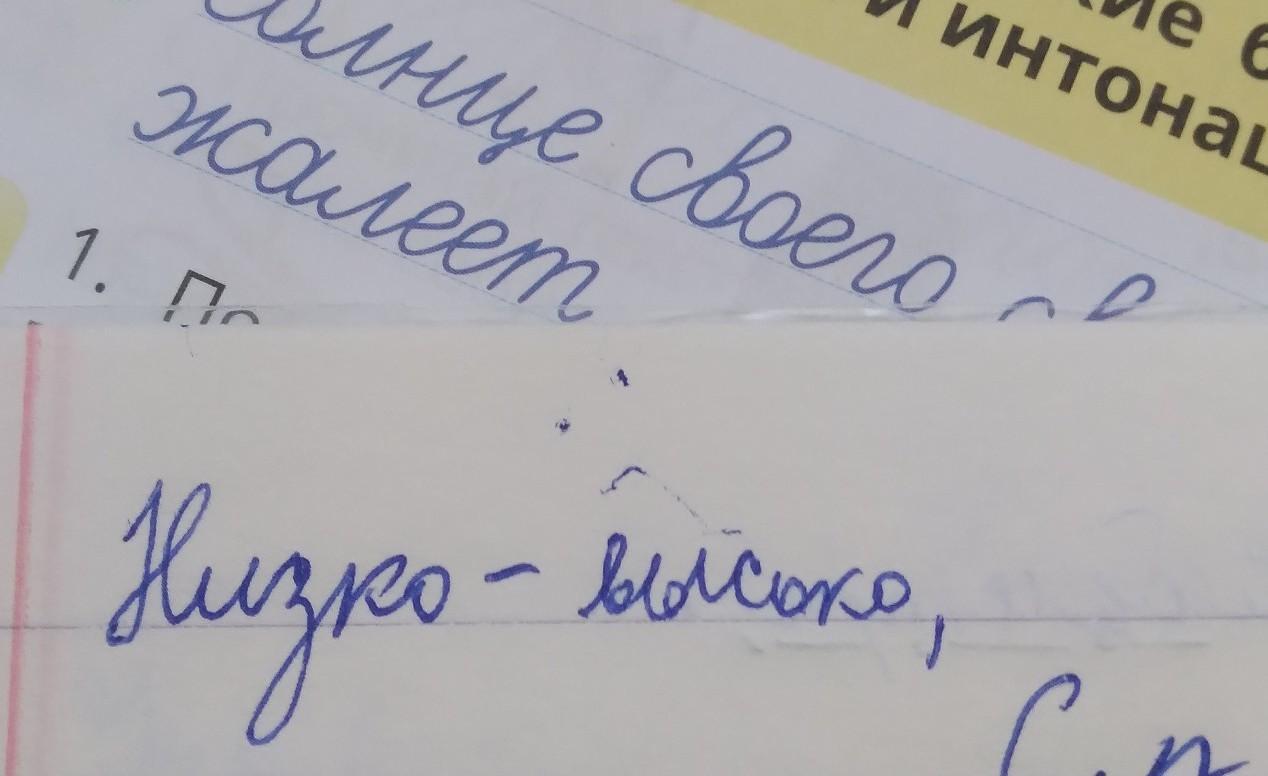 и интонац
олнце своего
жалеет
1.
Низко - высоко,